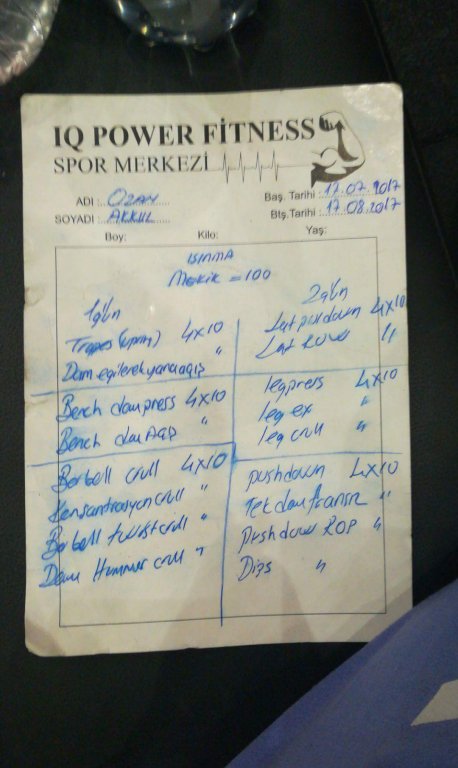 IQ POWER FİTNESS
SPOR MERKEZİ
ADI :.. OZAN
SOYADI :.. AKKUL
Baş. Tarihi : 17.07.2017
Btş.Tarihi : 17.08.2017
Boy: Kilo: Yaş:
ISINMA
Mekik = 100
1gün
Trapes 4x10
Dam egilerek yana açış "
Bench dam press 4x10
Bench dam Açış "
Barbell crull 4x10
Konsantrasyon crull "
Barbell twist crull "
Dam Hummer crull "
2gün
Lat pushdown 4x10
Lat Row "
leg press 4x10
leg ex "
leg crull "
pushdown 4x10
Tek dam fransız "
Pushdown ROP "
Dips "